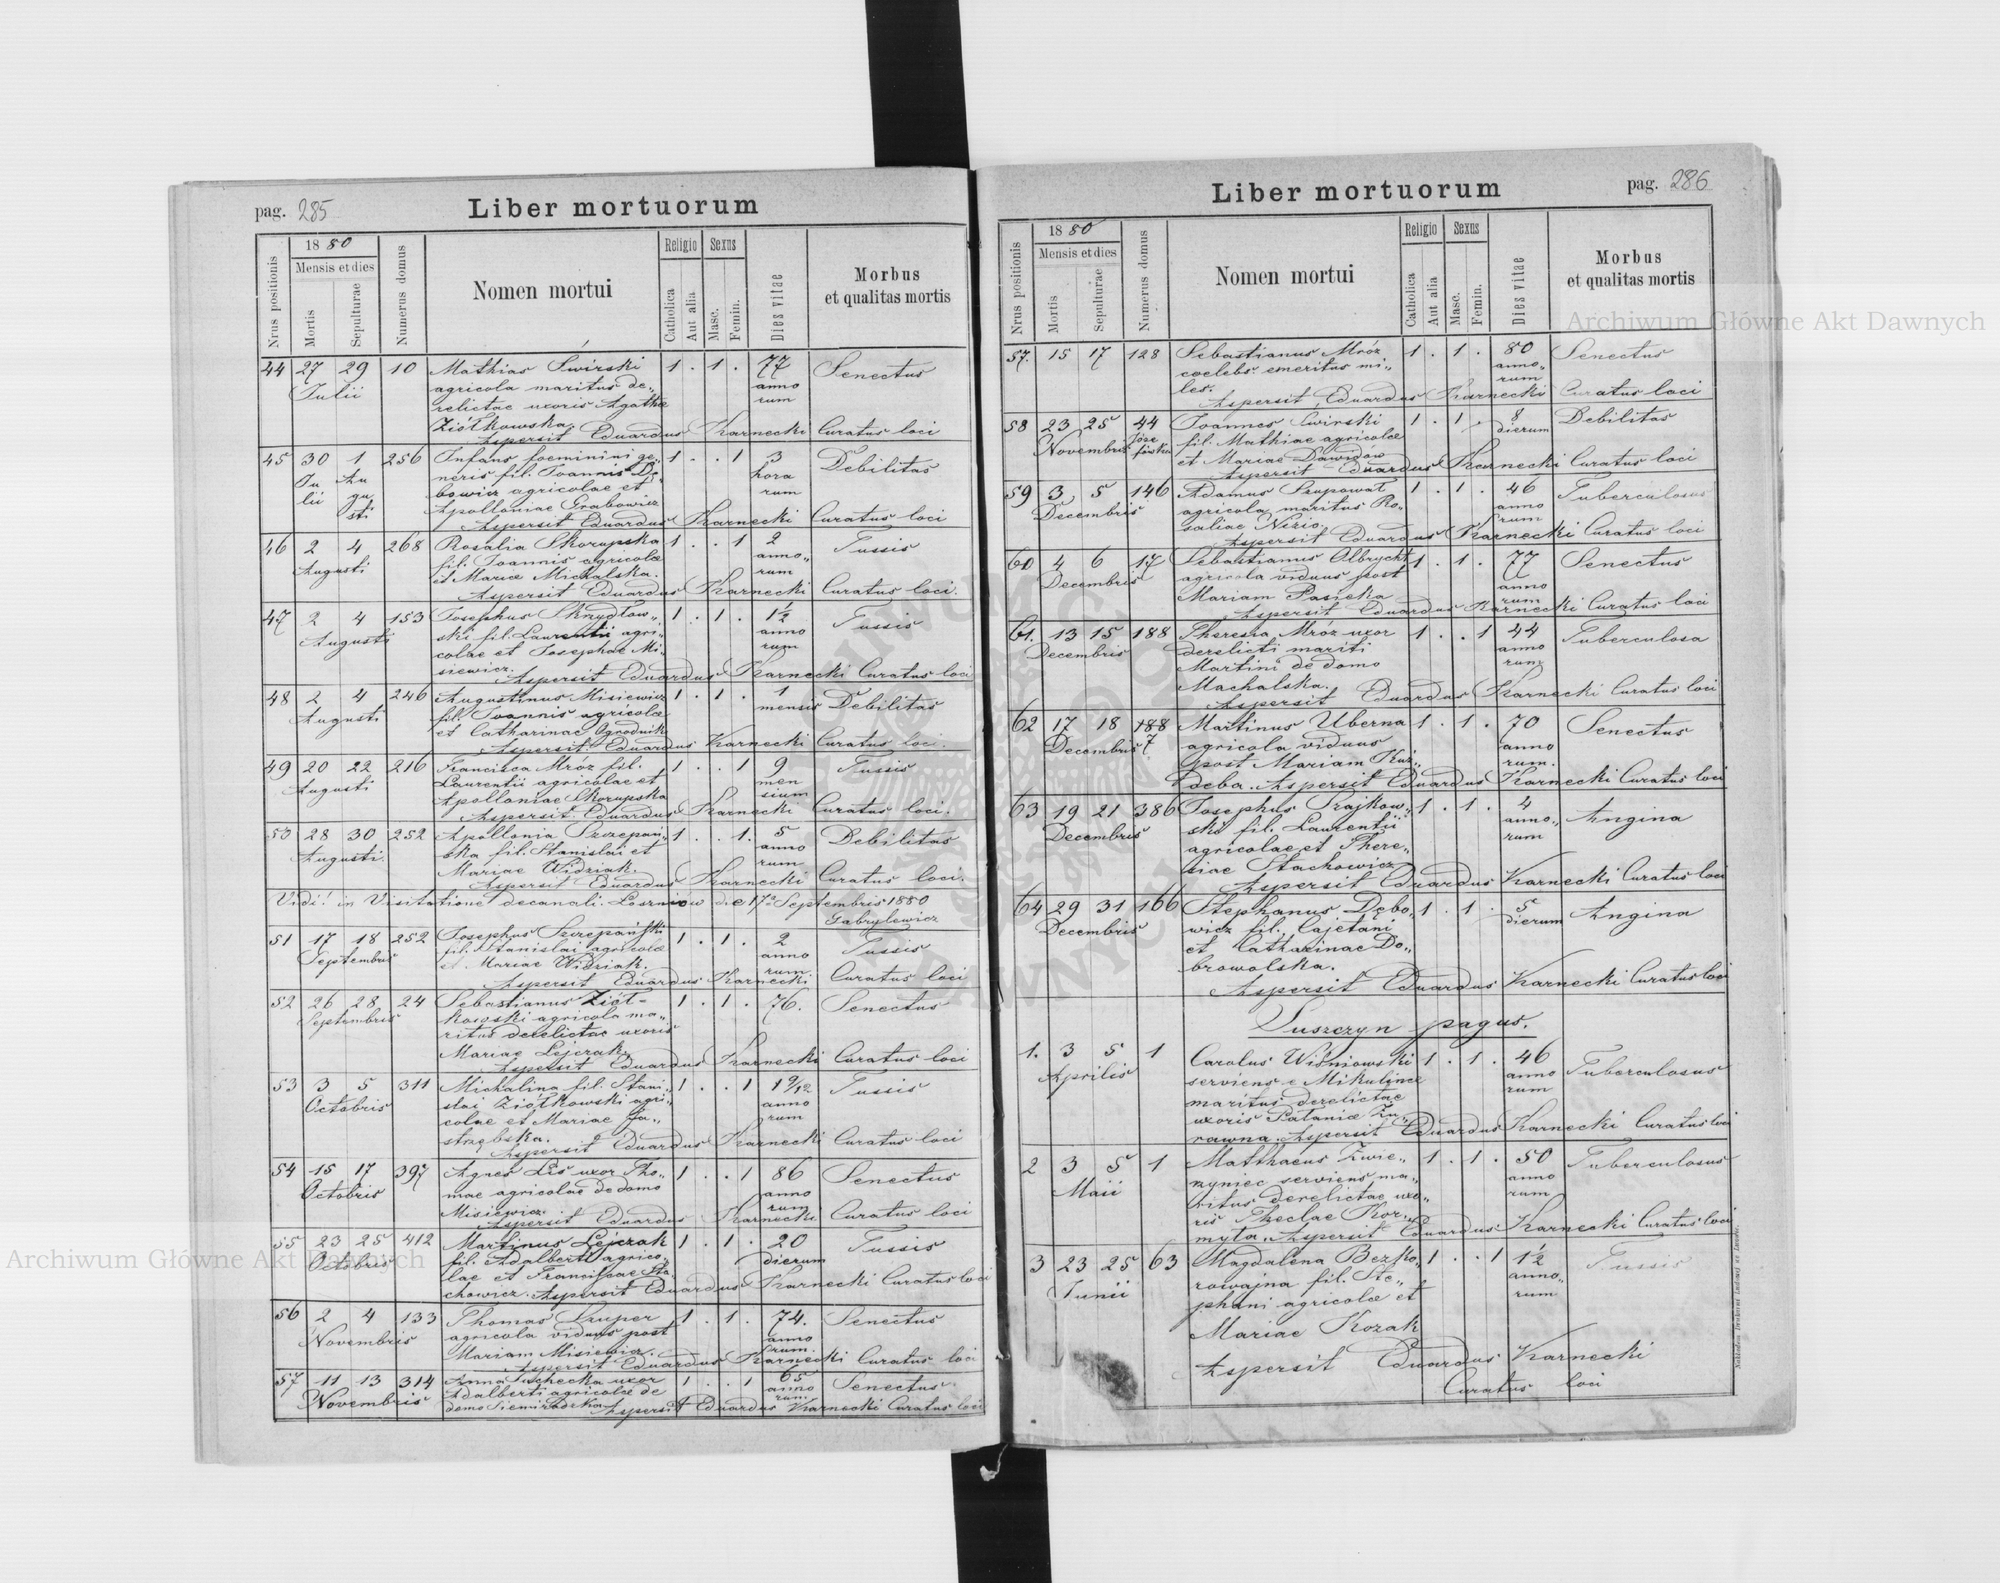 pag. 285
Liber mortuorum
Nrus positionis
1880
Mensis et dies
Mortis
Sepulturae
Numerus domus
Nomen mortui
Religio
Catholica
Aut alia
Sexus
Masc.
Femin.
Dies vitae
Morbus
et qualitas mortis
44 27 29 10 Mathias Swirski 1 . 1 . 77 Senectus
Julii agricola maritus de„ anno
relictae uxoris Agathae rum
Ziółkowska.
Aspersit Eduardus Karnecki Curatus loci
45 30 1 256 Infans foeminini ge„ 1 . . 1 3 Debilitas
Ju Au neris fil. Joannis Dę„ hora
lii gu bowicz agricolae et rum
sti Apolloniae Grabowicz
Aspersit Eduardus Karnecki Curatus loci
46 2 4 268 Rosalia Skorupska 1 . . 1 2 Tussis
Augusti fil. Joannis agricolae anno„
et Mariae Michalska. rum
Aspersit Eduardus Karnecki Curatus loci.
47 2 4 153 Josephus Skrzydłow„ 1 . 1 . 1½ Tussis
Augusti ski fil. Laurentii agri„ anno
colae et Josephae Mi„ rum
siewicz.
Aspersit Eduardus Karnecki Curatus loci
48 2 4 246 Augustinus Misiewicz 1 . 1 . 1 Debilitas
Augusti fil. Joannis agricolae mensis
et Catharinae Ogrodnik
Aspersit Eduardus Karnecki Curatus loci.
49 20 22 216 Francisca Mróz fil. 1 . . 1 9 Tussis
Augusti Laurentii agricolae et men
Apolloniae Skorupska sium
Aspersit Eduardus Karnecki Curatus loci.
50 28 30 252 Apollonia Szczepań„ 1 . . 1. 5 Debilitas
Augusti ska fil. Stanislai et anno
Mariae Widziak. rum
Aspersit Eduardus Karnecki Curatus loci.
Vidi! in Visitatione decanali. Losniow die 17a Septembris 1880
Gabrylewicz
51 17 18 252 Josephus Szczepański 1 . 1 . 2 Tussis
Septembris fil. Stanislai agricolae anno
et Mariae Widziak. rum
Aspersit Eduardus Karnecki Curatus loci
52 26 28 24 Sebastianus Ziół- 1 . 1 . 76. Senectus
Septembris kowski agricola ma„
ritus derelictae uxoris
Mariae Lejczak.
Aspersit Eduardus Karnecki Curatus loci
53 3 5 311 Michalina fil. Stani„ 1 . . 1 1 9/12 Tussis
Octobris slai Ziółkowski agri„ anno
colae et Mariae Ja„ rum
strzębska.
Aspersit Eduardus Karnecki Curatus loci
54 15 17 397 Agnes Lis uxor Tho„ 1 . . 1 86 Senectus
Octobris mae agricolae de domo anno
Misiewicz rum
Aspersit Eduardus Karnecki Curatus loci
55 23 25 412 Martinus Lejczak 1 . 1 . 20 Tussis
Octobris fil. Adalberti agrico„ dierum
lae et Franciscae Sta„
chowicz. Aspersit Eduardus Karnecki Curatus loci
56 2 4 133 Thomas Szuper 1 . 1 . 74. Senectus
Novembris agricola viduus post anno
Mariam Misiewicz. rum.
Aspersit Eduardus Karnecki Curatus loci
57 11 13 314 Anna Suchecka uxor 1 . . 1 65 Senectus
Novembris Adalberti agricolae de anno
domo Aspersit Eduardus Karnecki Curatus loci
pag. 286
Liber mortuorum
Nrus positionis
1880
Mensis et dies
Mortis
Sepulturae
Numerus domus
Nomen mortui
Religio
Catholica
Aut alia
Sexus
Masc.
Femin.
Dies vitae
Morbus
et qualitas mortis
57. 15 17 128 Sebastianus Mróz 1 . 1 . 80 Senectus
coelebs emeritus mi„ anno„
les. rum
Aspersit Eduardus Karnecki Curatus loci
58 23 25 44 Joannes Swirski 1 . 1 . 8 Debilitas
Novembris Józe fil. Mathiae agricolae dierum
fówka et Mariae Dawidów
Aspersit Eduardus Karnecki Curatus loci
59 3 5 146 Adamus Szupował 1 . 1 . 46 Tuberculosus
Decembris agricola maritus Ro„ anno
saliae Nizio. rum
Aspersit Eduardus Karnecki Curatus loci
60 4 6 17 Sebastianus Olbrycht 1 . 1 . 77 Senectus
Decembris agricola viduus post anno
Mariam Pasicka rum
Aspersit Eduardus Karnecki Curatus loci
61. 13 15 188 Theresia Mróz uxor 1 . . 1 44 Tuberculosa
Decembris derelicti mariti anno
Martini de domo rum
Machalska.
Aspersit Eduardus Karnecki Curatus loci
62 17 18 188 Martinus Uberna 1 . 1 . 70 Senectus
Decembris 7 agricola viduus anno
post Mariam Kuz„ rum.
deba. Aspersit Eduardus Karnecki Curatus loci
63 19 21 386 Josephus Trajkow„ 1 . 1 . 4 Angina
Decembris ski fil. Laurentii anno„
agricolae et There„ rum
siae Stachowicz
Aspersit Eduardus Karnecki Curatus loci
64 29 31 166 Stephanus Dębo„ 1 . 1 . 5 Angina
Decembris wicz fil. Cajetani dierum
et Catharinae Do„
browolska.
Aspersit Eduardus Karnecki Curatus loci
Suszczyn pagus.
1. 3 5 1 Carolus Wiśniowski 1 . 1 . 46 Tuberculosus
Aprilis serviens e Mikulince anno
maritus derelictae rum
uxoris Tatanie Żu„
rawna. Aspersit Eduardus Karnecki Curatus loci
2 3 5 1 Matthaeus Kwie„ 1 . 1 . 50 Tuberculosus
Maii serviens ma„ anno
ritus derelictae uxo„ rum
ris Theclae Kor„
myta. Aspersit Eduardus Karnecki Curatus loci
3 23 25 63 Magdalena Bezko„ 1 . . 1 1½ Tussis
Junii rowajna fil. Ste„ anno„
phani agricolae et rum
Mariae Kozak
Aspersit Eduardus Karnecki
Curatus loci
Archiwum Główne Akt Dawnych
Archiwum Główne Akt Dawnych